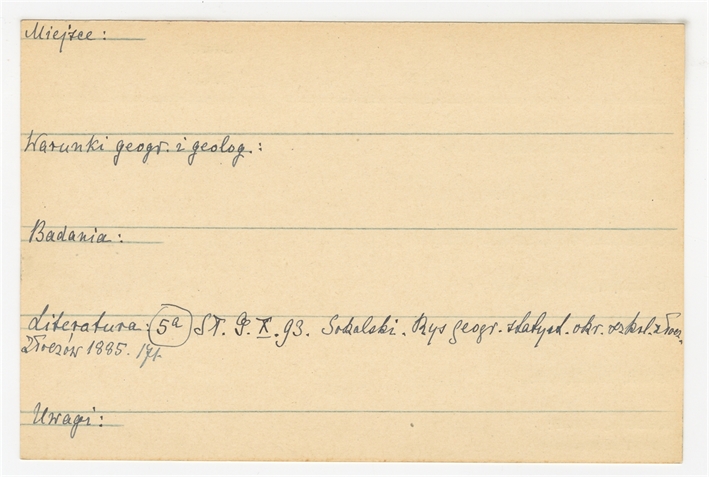 Miejsce:
Warunki geogr. i geolog.:
Badania:
Literatura. 5a St. G. X. 93. Sokalski. Rys geogr. statyst. okr. szkol. złocz.
Złoczów 1885. 171
Uwagi: